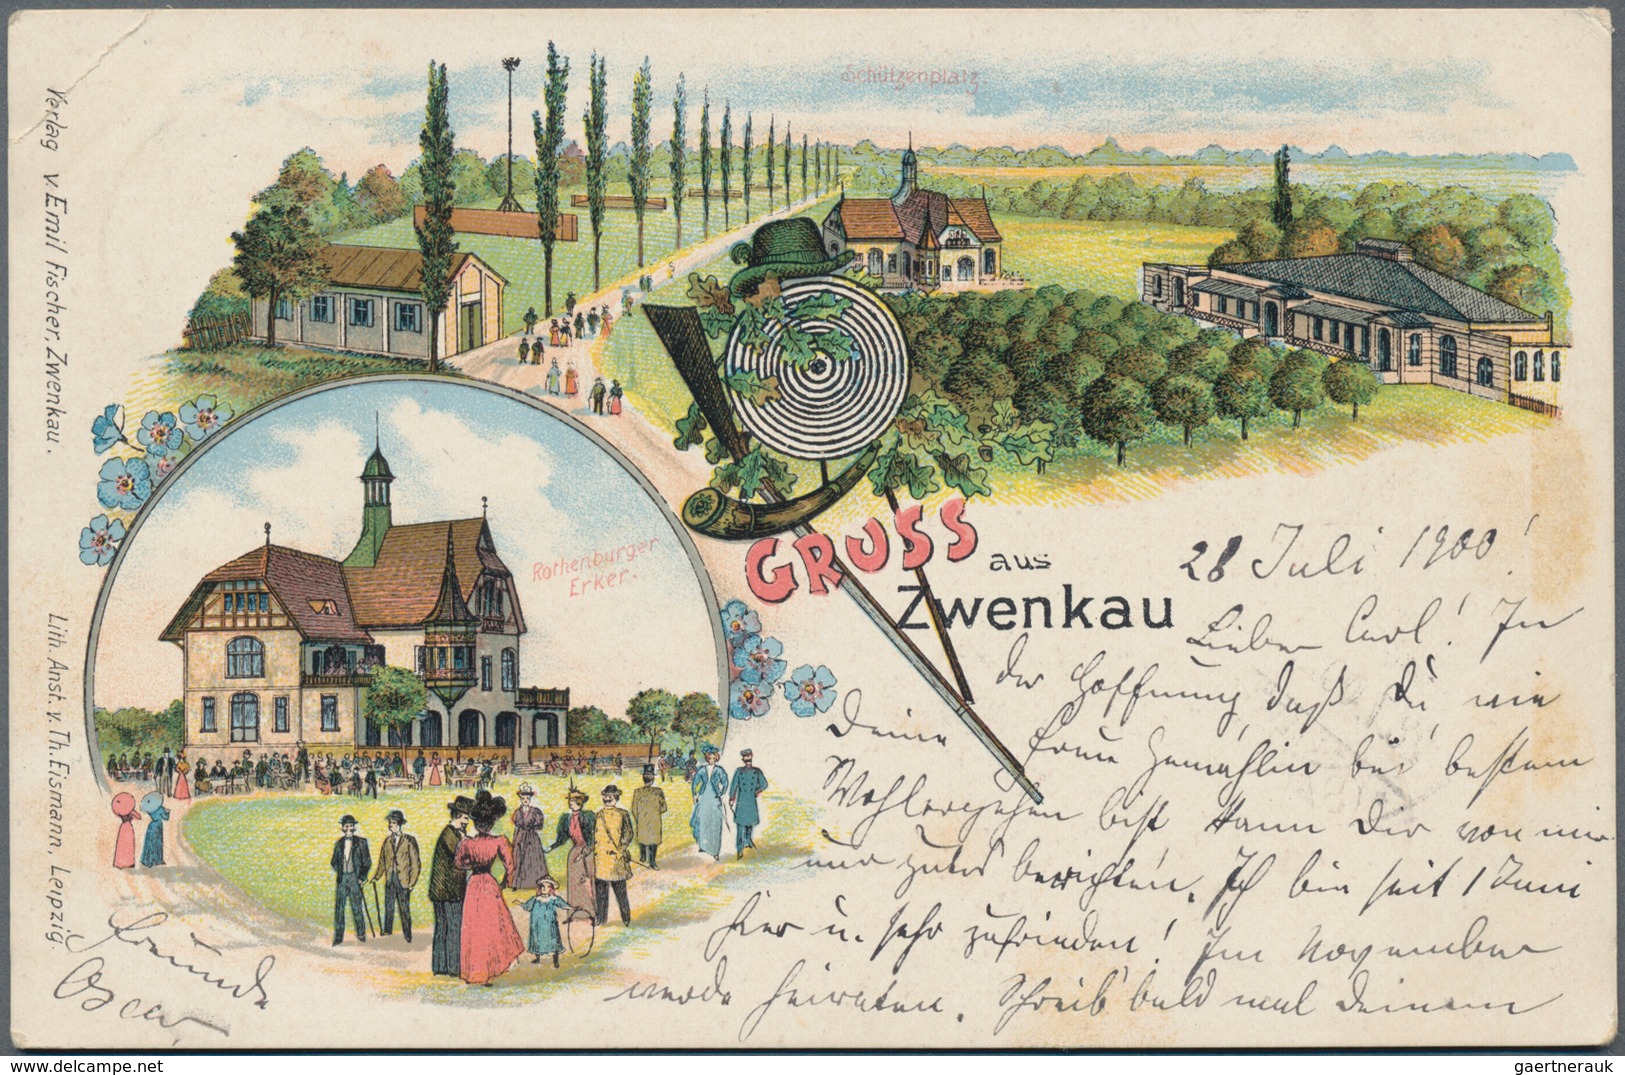 Schützenplatz
Verlag v. Emil Fischer, Zwenkau.
Lith. Anst. v. Th. Eismann, Leipzig.
Rothenburger
Erker.
GRUSS
aus
Zwenkau
28 Juli 1900!
Lieber Carl! In
der Hoffnung daß Du, wie
Deine Frau Gemahlin bei bestem
Wohlergehen bist kann Dir von mir
nur gutes berichten. Ich bin seit 1 Juni
hier u. sehr zufrieden! Im November
werde heiraten. Schreib bald mal Deinem
Freunde
Oscar
gaertnerauk